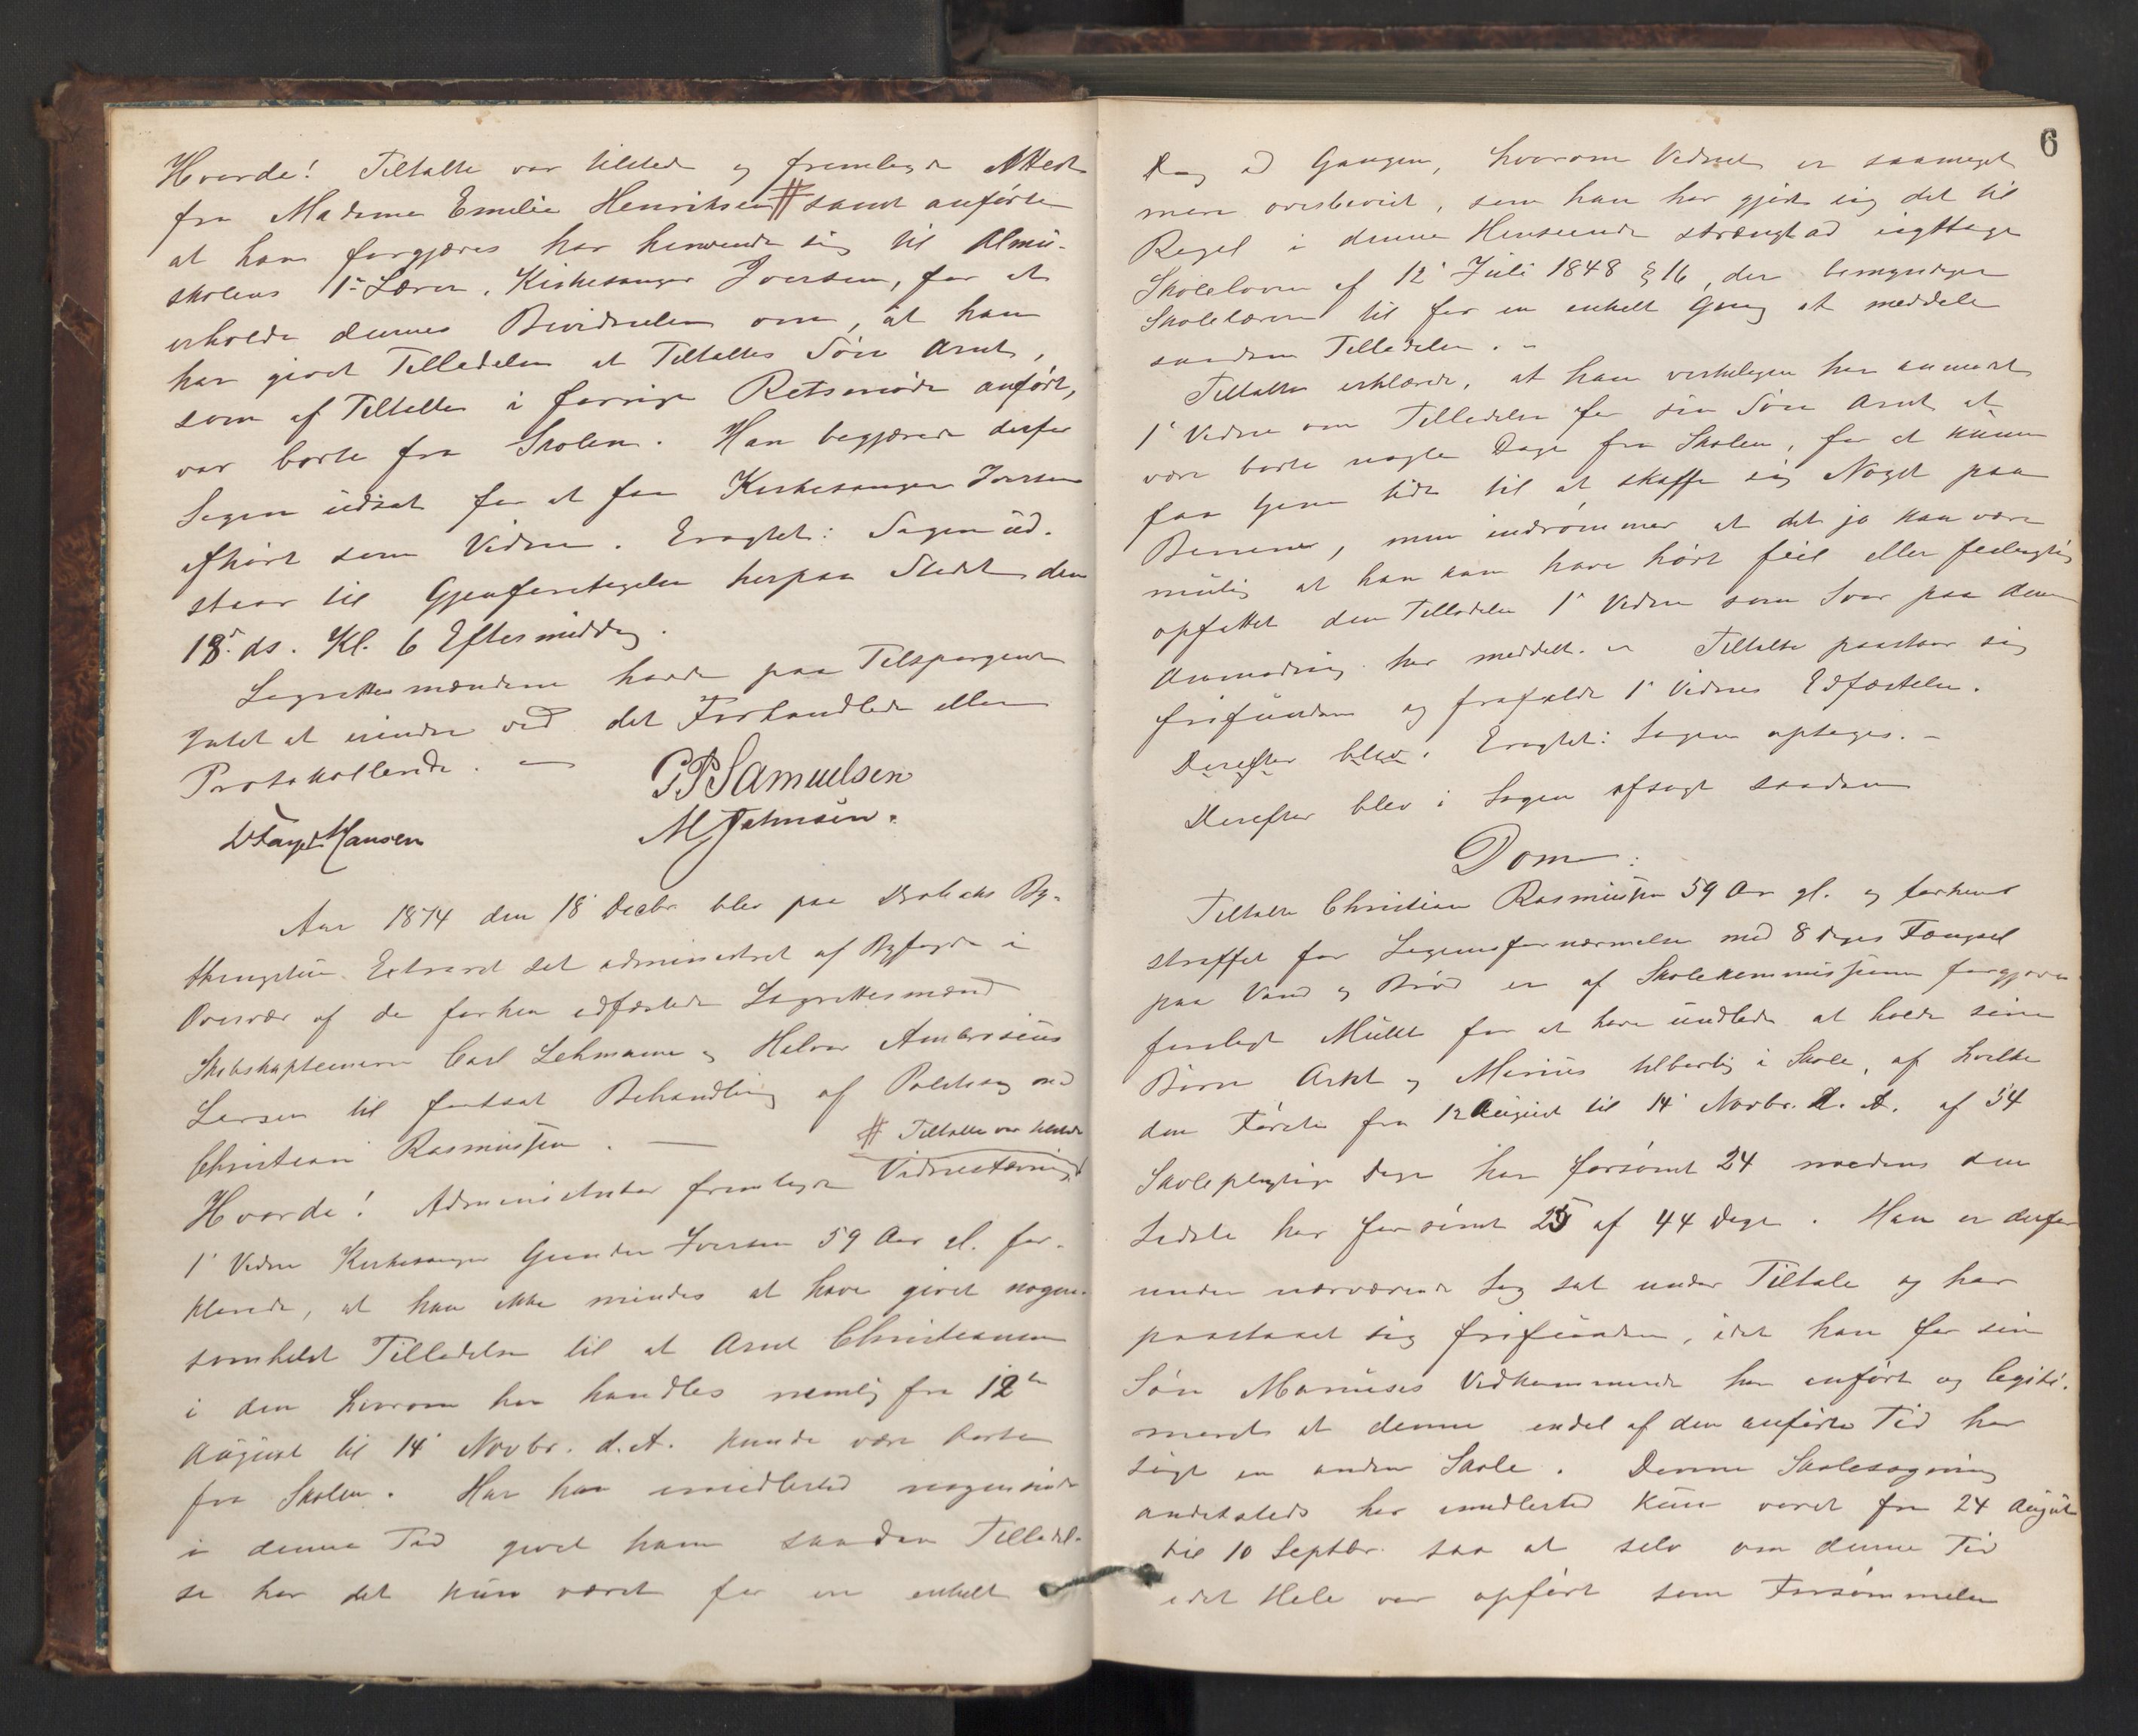 Hvorda! Tiltalte var tilstede og fremlagde Attest
fra Madame Emilie Henriksen # samt anførte
at han forgjæves har henvendt sig til Almu-
skolens 1ste Lærer, Kirkesanger Iversen, for at
erholde dennes Bevidnelse om, at han
har givet Tilladelse at Tiltaltes Søn Arnt,
som af Tiltalte i forrige Retsmøde anført,
var borte fra Skolen. Han begjærede derfor
Sagen udsat for at faa Kirkesanger Iversen
afhørt som Vidne. Eragtet: Sagen ud-
staar til Gjenforetagelse herpaa Stedet den
18de ds. Kl. 6 Eftermiddag.
Lagrettesmændene havde paa Tilspørgende
Intet at erindre ved det Forhandlede eller
Protokollerede. —
GPSamuelsen
D Faye Hansen
M Johnsen.
Aar 1874 den 18 Decbr blev paa Drøbaks By-
thingstue Extraret sat administreret af Byfogden i
Overvær af de forhen edfæstede Lagrettesmænd
Skibskapteinerne Carl Lehmann og Halvor Ambrosius
Larsen til fortsat Behandling af Politisag mod
Christian Rasmussen. —
# Tiltalte var tilstede
Hvorda! Administrator fremlagde Vidnestævning
1ste Vidne Kirkesanger Gunder Iversen 59 Aar gl. for-
klarede, at han ikke mindes at have givet nogen-
somhelst Tilladelse til at Arnt Christiansen
i den hvorom her handles nemlig fra 12te
August til 14 Novbr. d. A. kunde være borte
fra Skolen. Har han imidlertid nogensinde
i denne Tid givet ham saadan Tilladel-
se har det kun været for en enkelt
6
Dag ad Gangen, hvorom Vidnet er saameget
mere overbevist, som han har gjort sig det til
Regel i denne Henseende strængt at iagttage
Skoleloven af 12 Juli 1848 § 16, der bemyndiger
Skolelæreren til for en enkelt Gang at meddele
saadan Tilladelse. -
Tiltalte erklærede, at han virkeligen har anmodet
1ste Vidne om Tilladelse for sin Søn Arnt at
være borte nogle Dage fra Skolen, for at kunne
faa tjene lidt til at skaffe sig Noget paa
Benene, men indrømmer at det jo kan være
mulig at han kan have hørt feil eller feilagtig
opfattet den Tilladelse 1ste Vidne som Svar paa denne
Anmodning har meddelt. - Tiltalte paastaar sig
frifunden og frafaldt 1ste Vidnes Edfæstelse.
Derefter blev: Eragtet: Sagen optages. -
Derefter blev i Sagen afsagt saadan
Dom:
Tiltalte Christian Rasmussen 59 Aar gl. og forhen
straffet for Legemsfornærmelse med 8 Dages Fængsel
paa Vand og Brød er af Skolekommissionen forgjæves
forelagt Mulkt for at have undladt at holde sine
Børn Arnt og Marius tilbørlig i Skole, af hvilke
den Første fra 12 August til 14 Novbr. d. A. af 54
Skolepligtige Dage har forsømt 24 medens den
Sidste har forsømt 25 af 44 Dage. Han er derfor
under nærværende Sag sat under Tiltale og har
paastaaet sig frifunden, idet han for sin
Søn Mariuses Vedkommende har anført og legiti-
meret at denne endel af den anførte Tid har
søgt en anden Skole. Denne Skolesøgning
andetsteds har imidlertid kun varet fra 24 August
til 10 Septbr. saa at selv om denne Tid
i det Hele var opført som Forsømmelse